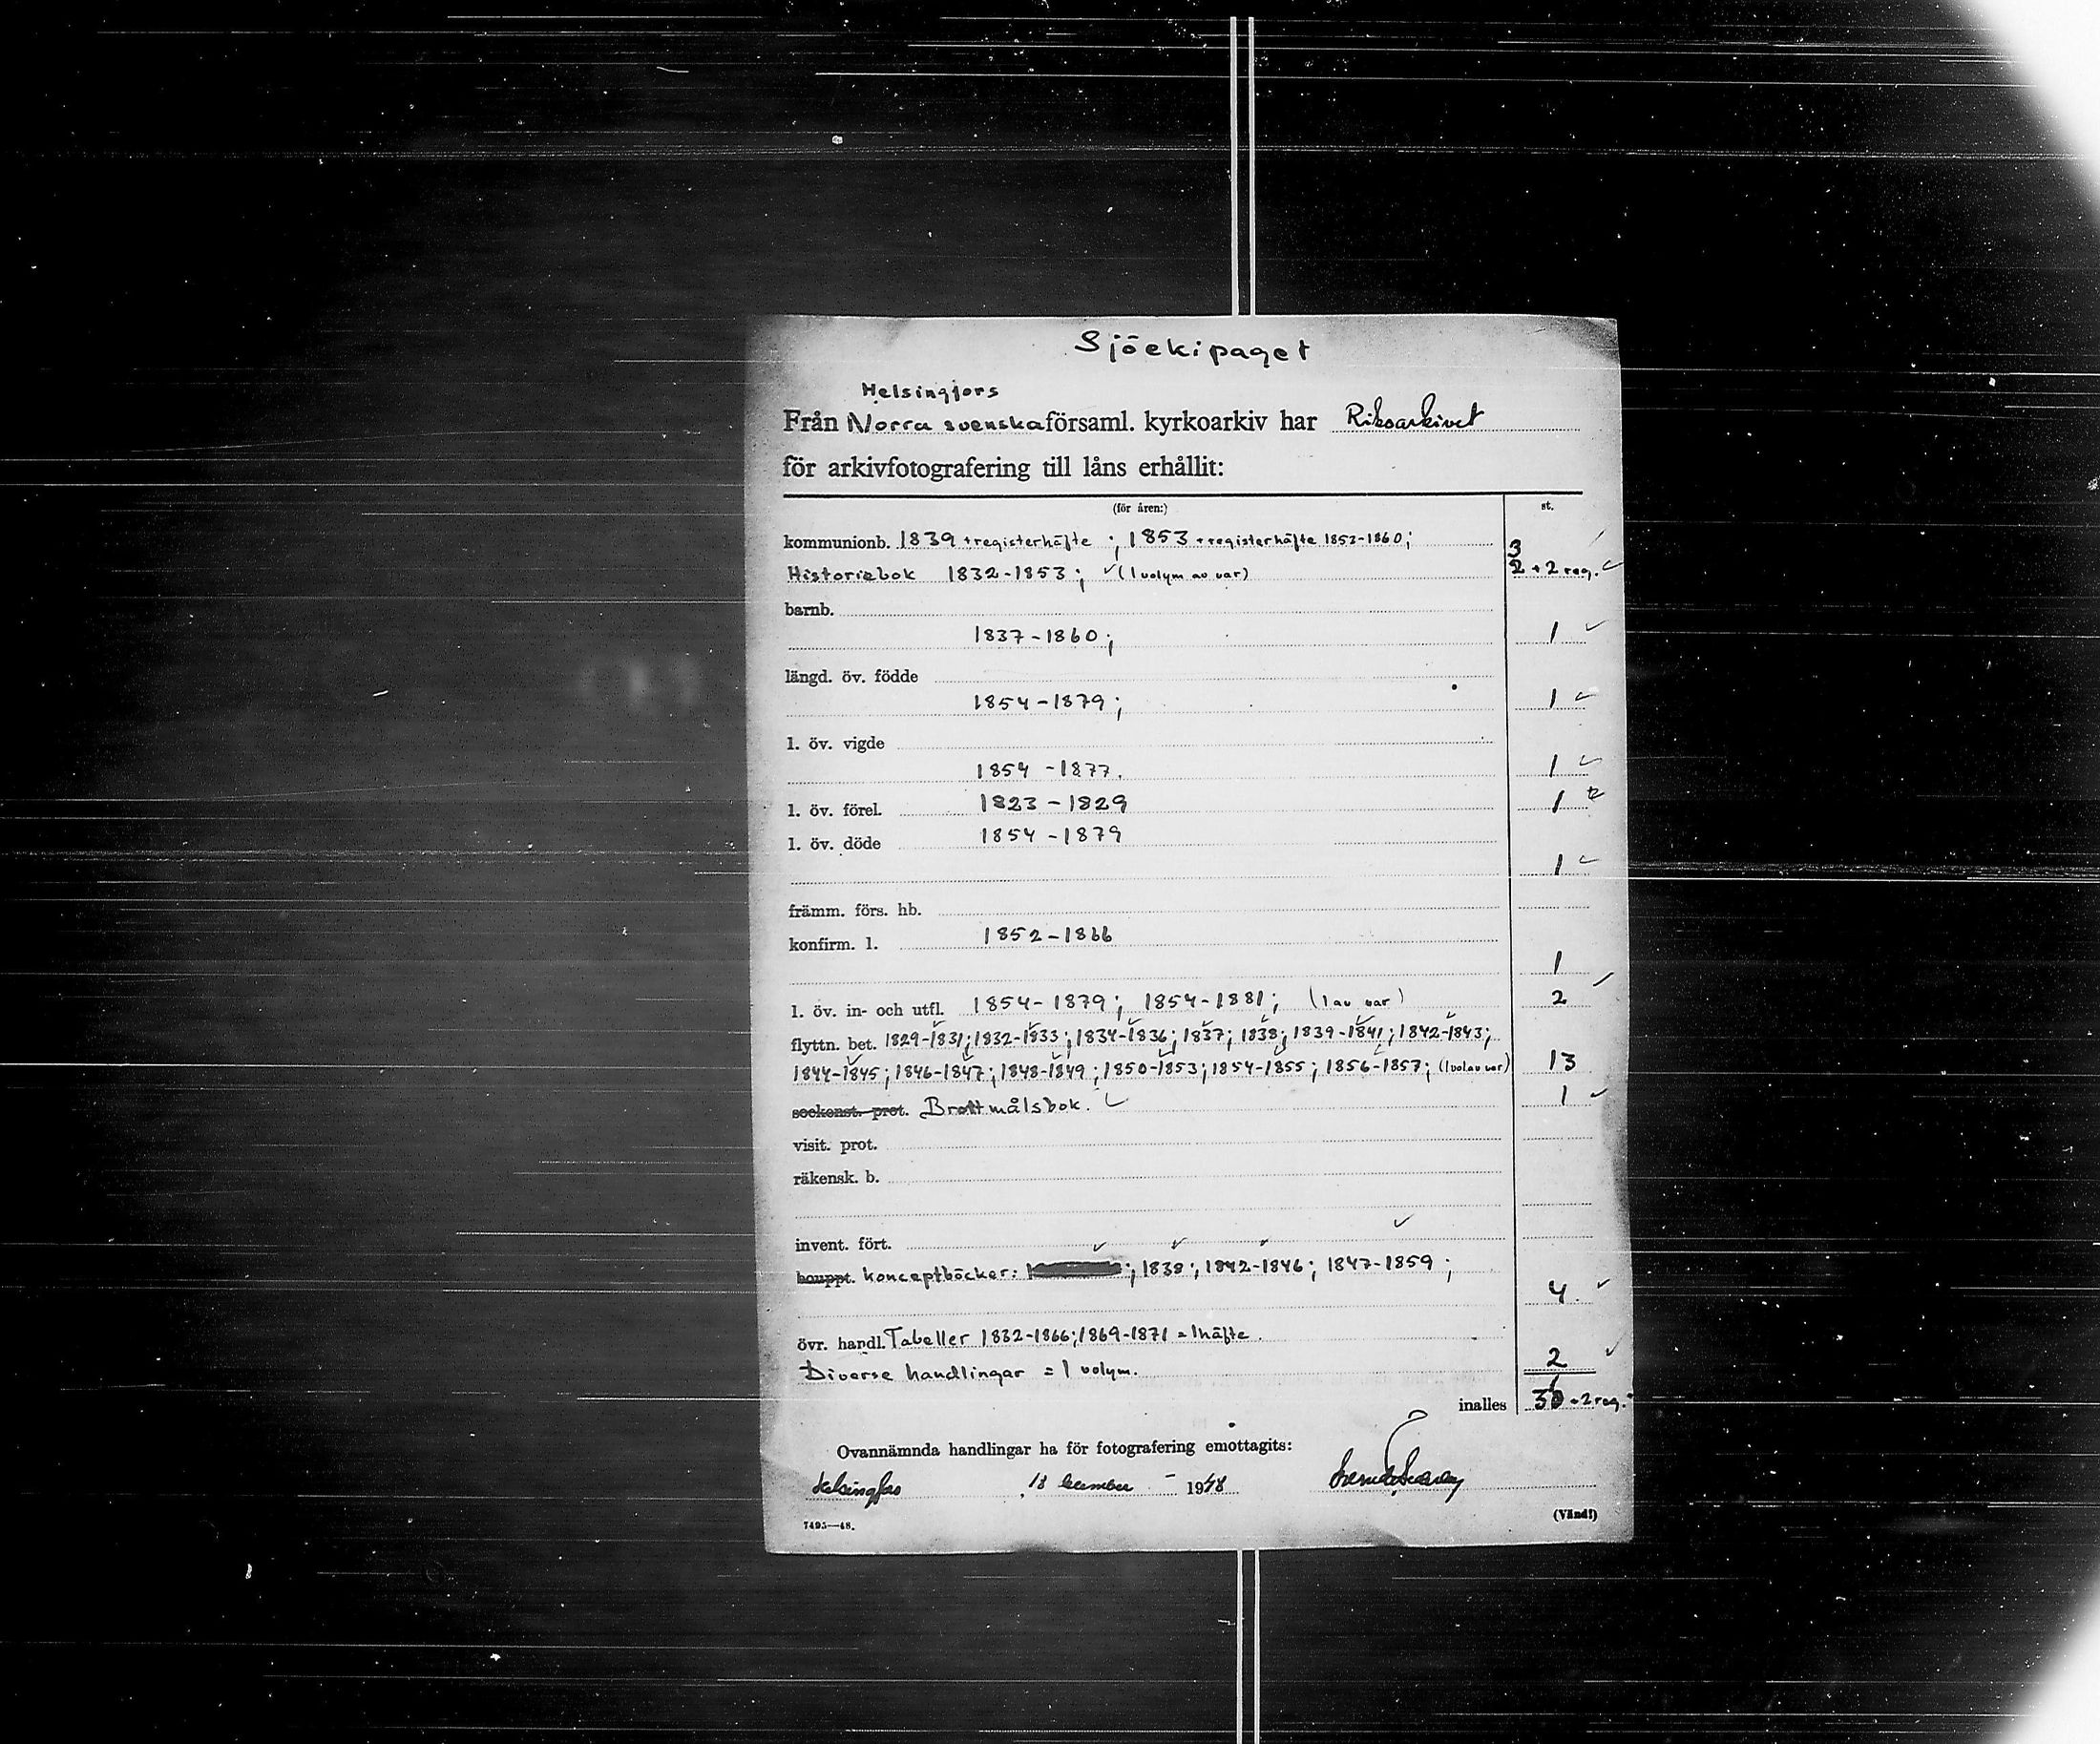 Sjöekipaget
Helsingfors
Från Norra svenska församl. kyrkoarkiv har Riksarkivet
för arkivfotografering till låns erhållit:
(för åren:) st.
kommunionb. 1839 + registerhäfte ; 1853 + registerhäfte 1853-1860; 3
Historiebok 1832-1853; (1 volym av var) 2 + 2 reg.
barnb.
1837-1860; 1
längd. öv. födde
1854-1879; 1
l. öv. vigde
1854-1877. 1
l. öv. förel. 1823-1829 1
l. öv. döde 1854-1879
1
främm. förs. hb.
konfirm. l. 1852-1866
1
l. öv. in- och utfl. 1854-1879; 1854-1881; (1 av var) 2
flyttn. bet. 1829-1831; 1832-1833; 1834-1836; 1837; 1838; 1839-1841; 1842-1843;
1844-1845; 1846-1847; 1848-1849; 1850-1853; 1854-1855; 1856-1857; (1 vol. av var) 13
sockenst. prot. Brottmålsbok. 1
visit. prot.
räkensk. b.
invent. fört.
bouppt. Konceptböcker: ; 1838; 1842-1846; 1847-1859;
4
övr. handl. Tabeller 1832-1866; 1869-1871 = 1 häfte.
Diverse handlingar = 1 volym. 2
inalles + 2 reg.
Ovannämnda handlingar ha för fotografering emottagits:
Helsingfors 18 december 1948
7495—48. (Vänd!)